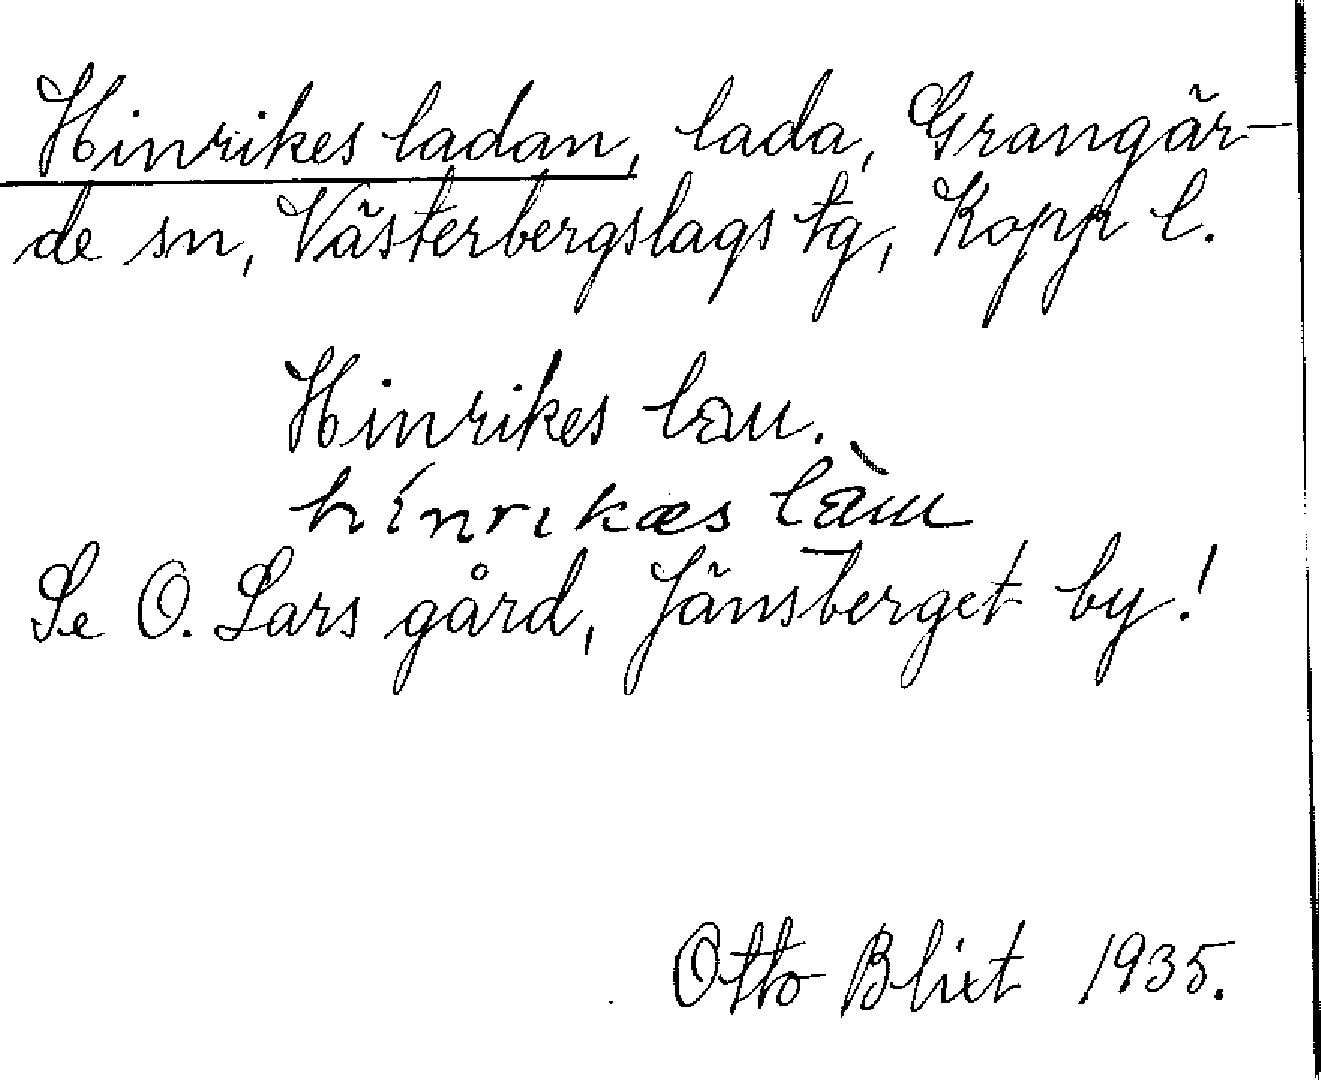 Hinrikes ladan, lada, Grangär-
de sn, Västerbergslags tg, Kopp l.
Hinrikes lau.
hinrikæs
Se O. Lars gård, Jänsberget by!
Otto Blixt 1935.